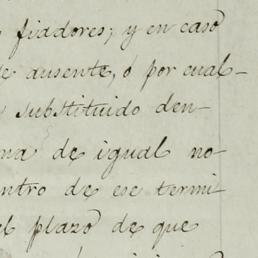 fiadores; y en caso
de ausente, ó por cual-
substituido den-
na de igual no
entro de ese termi
el plazo de que